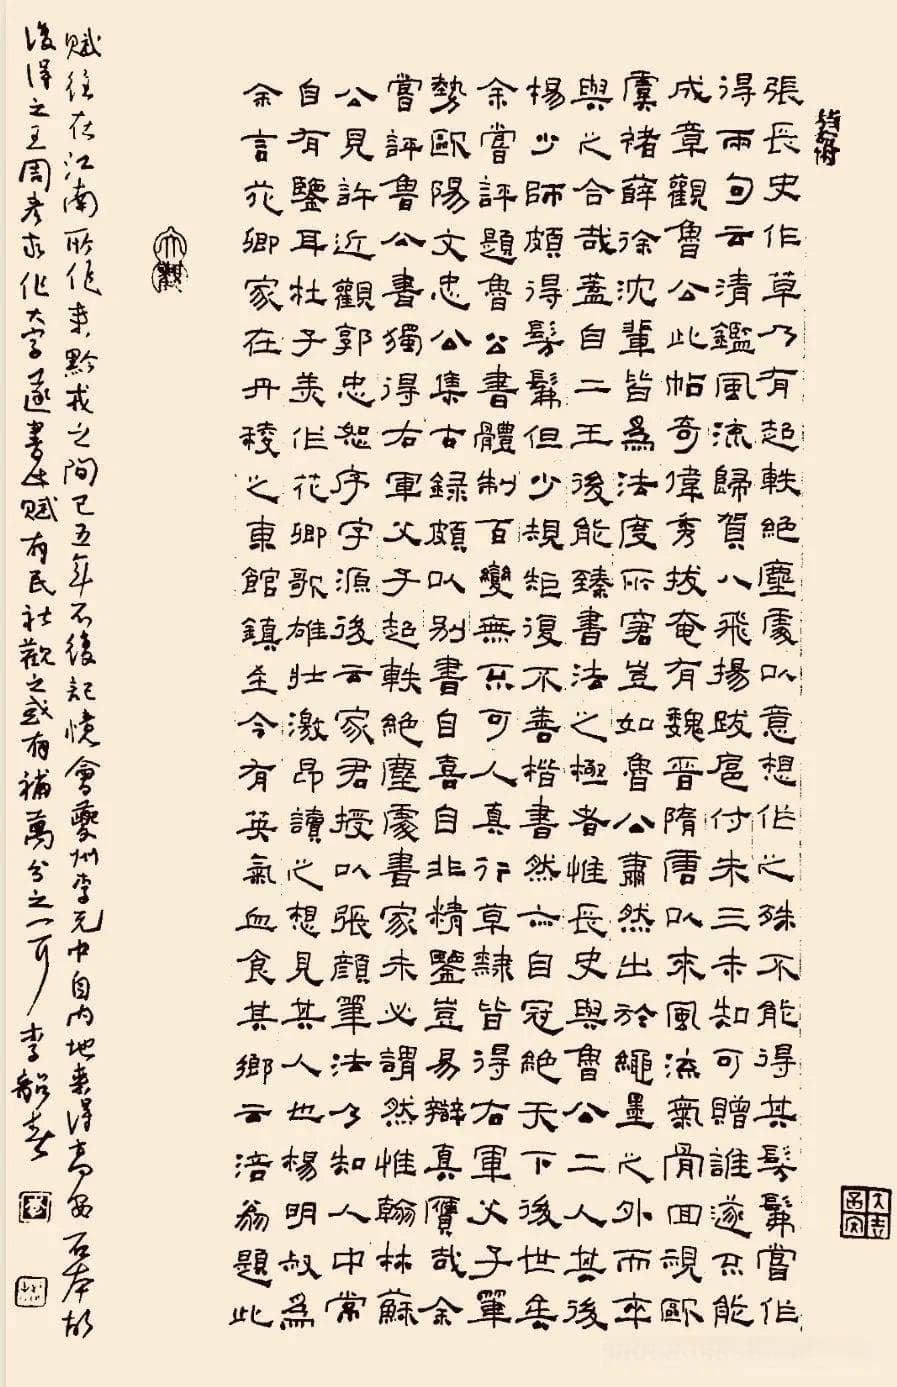 張長史作草乃有超軼絕塵處以意想作之殊不能得其髣髴嘗作
得兩句云清鑑風流歸賀八飛揚跋扈付朱三未知可贈誰遂不能
成章觀魯公此帖奇偉秀拔奄有魏晉隋唐以來風流氣骨回視歐
虞褚薛徐沈輩皆為法度所窘豈如魯公蕭然出於繩墨之外而卒
與之合哉蓋自二王後能臻書法之極者惟長史與魯公二人其後
楊少師頗得髣髴但少規矩復不善楷書然亦自冠絕天下後世矣
余嘗評題魯公書體制百變無不可人真行草隸皆得右軍父子筆
勢歐陽文忠公集古錄頗以別書自喜自非精鑒豈易辯真贋哉余
嘗評魯公書獨得右軍父子超軼絕塵處書家未必謂然惟翰林蘇
公見許近觀郭忠恕序字源後云家君授以張顏筆法乃知人中常
自有鑒耳杜子美作花卿歌雄壯激昂讀之想見其人也楊明叔為
余言花卿家在丹稜之東館鎮至今有英氣血食其鄉云涪翁題此
賦往在江南所作来黔戎之間已五年不復記憶會夔州李元中自内地来得高安石本故
復得之王周彦求作大字遂書此賦有民社觀之或有補萬分之一耳 李韶春